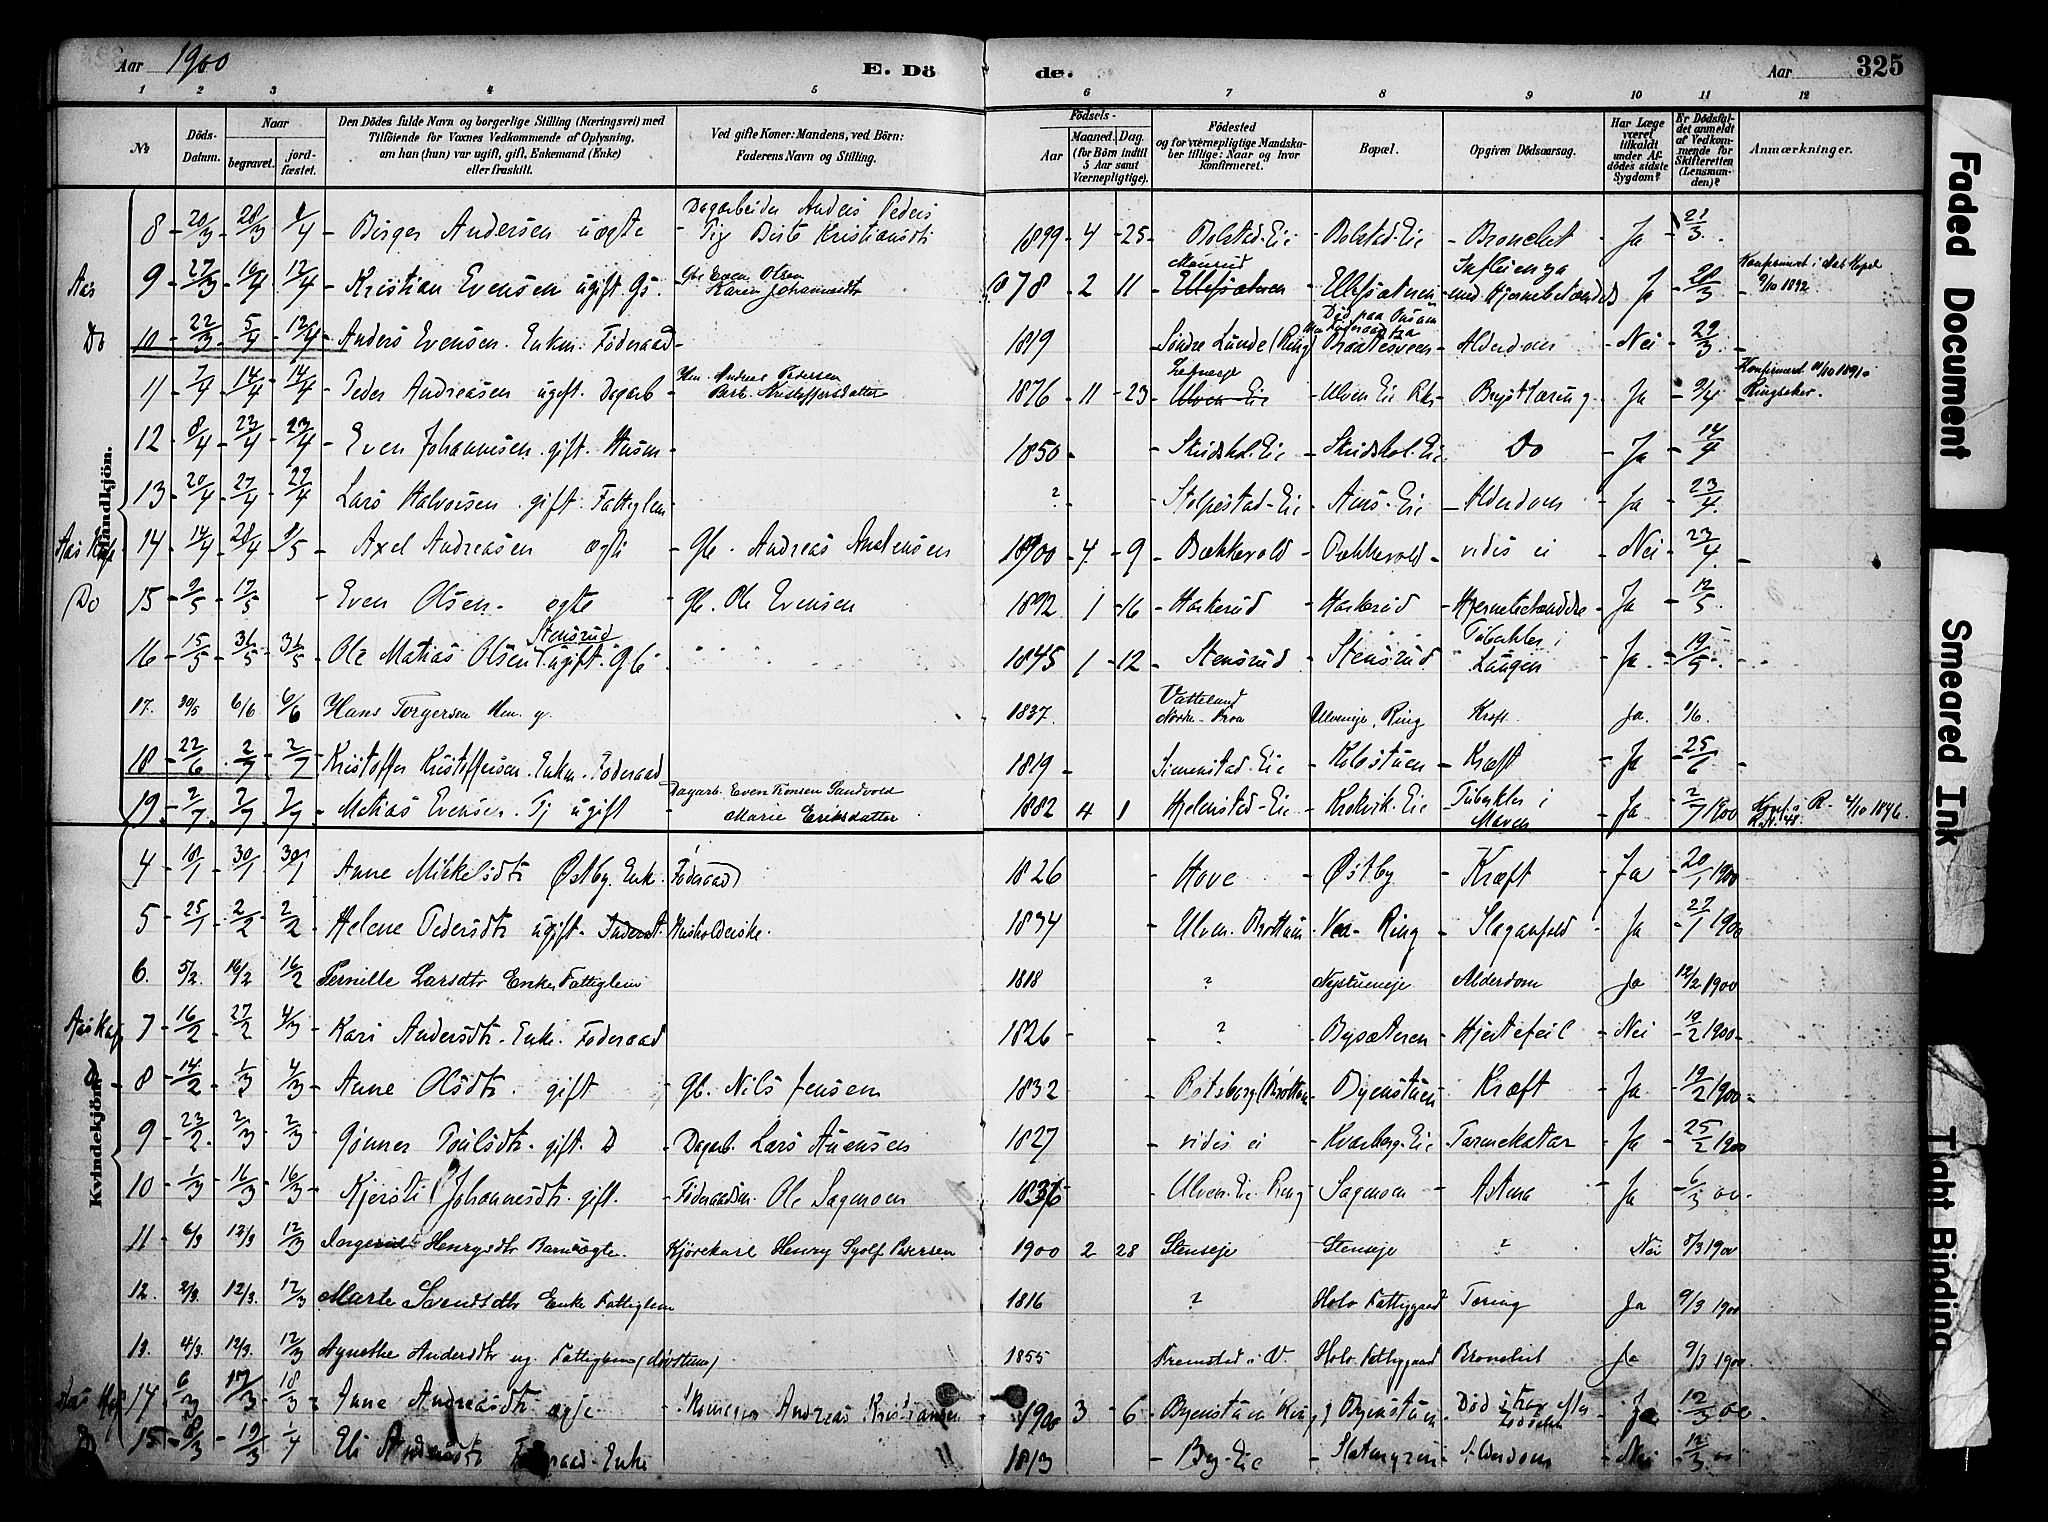 Aar 1900
E. Dö
de.
Aar
325
1 2 3 4 5 6 7 8 9 10 11 12
№
Döds-Datum.
Naar
begravet.
jord-fæstet.
Den Dödes fulde Navn og borgerlige Stilling (Næringsvei) med
Tilföiende for Voxnes Vedkommende af Oplysning,
om han (hun) var ugift, gift, Enkemand (Enke)
eller fraskilt.
Ved gifte Koner: Mandens, ved Börn:
Faderens Navn og Stilling.
Födsels-
Aar
Maaned. Dag.
(for Börn indtil
5 Aar samt
Værnepligtige).
Födested
og for værnepligtige Mandska-
ber tillige: Naar og hvor
konfirmeret.
Bopæl.
Opgiven Dödsaarsag.
Har Læge
været
tilkaldt
under Af-
dödes sidste
Sygdom?
Er Dödsfal-
det anmeldt
af Vedkom-
mende for
Skifteretten
(Lensman-
den)?
Anmærkninger.
Mandkjön.
8 20/3 28/3 1/4 Birger Andersen uægte Dagarbeider Anders Peders Pige Birte Kristiansdtr 1899 4 25 Bolstad-Eie Bolstad-Eie Bronchit Ja 21/3
Aas 9 27/3 10/4 12/4 Kristian Evensen ugift Gs. Gbr Even Olsen Karen Johannesdtr 1878 2 11 Ellefsæteren Ellefsæteren Influenza med Hjernebetændels Ja 28/3 Konfirmeret i Aas Kapel 9/10 1892
Do 10 22/3 5/4 12/4 Anders Evensen. Enkm. Föderaad 1819 Söndre Lunde (Ring) Braatesveen Alderdom Nei 29/3
11 7/4 14/4 14/4 Peder Andreasen ugift. Dagarb Hm. Andreas Pedersen Bert. Kristoffersdatter 1876 11 23 Ulven Eie Ulven Eie Rk. Brysttæring Ja 9/4 Konfirmeret 11/10 1891 Ringsaker.
12 8/4 23/4 23/4 Even Johannesen. gift. Husm 1850 Skridshol. Eie Skridshol. Eie Do Ja 14/4
13 20/4 27/4 27/4 Lars Halvorsen. gift. Fattiglem ? Stolpestad-Eie Aens-Eie Alderdom Ja 23/4
Aas Kap 14 14/4 28/4 9/5 Axel Andreasen ægte Gbr. Andreas Amundsen 1900 4 9 Bækkevold Bækkevold vides ei Nei 23/4
Do 15 9/5 17/5 Even Olsen ægte Gbr. Ole Evensen 1892 1 16 Harkerud Harkerud Hjernebetændelse Ja 12/5
16 15/5 31/5 31/5 Ole Matias Olsen Stensrud ugift. Gbr 1845 1 12 Stensrud Stensrud Tuberkler i Lungen Ja 19/5
17. 30/5 6/6 6/6 Hans Torgersen Hm. g. 1837. Ulveneje, Ring Kræft. Ja. 1/6
18 22/6 2/7 2/7 Kristoffer Kristoffersen. Enkm. Föderaad 1819 Simenstad-Eie Klostuen Kræft Ja 25/6
19 2/7 7/7 7/7 Matias Evensen. Tj ugift Dagarb. Even Tronsen Sandvold Marie Eriksdatter 1882 4 1 Hjelmstad-Eie Krekvik-Eie Tuberkler i Maven Ja 2/7 1900 Konf. i R. 4/10 1896.
Kvindekjön.
4 18/1 30/1 30/1 Anne Mikkelsdtr Østby. Enke. Föderaad 1826 Hove Østby Kræft Ja 20/1 1900
5 25/1 2/2 2/2 Helene Pedersdtr ugift. Husholderske. 1834 Ulven. Brøttum Vea-Ring Slaganfald Ja 27/1 1900
6. 5/2. 16/2 16/2 Pernille Larsdtr Enke, Fattiglem 1818 ? Nystueneje Alderdom Ja 12/2 1900
Aas Kap 7 16/2 27/2 4/3 Kari Andersdtr. Enke. Föderaad 1826 ? Bysæteren Hjertefeil Nei 19/2 1900
D 8 14/2 1/3 4/3 Anne Olsdtr. gift Gbr. Nils Jensen 1832 Rotsborg (Brøttum Byenstuen Kræft Ja 19/2 1900
9 23/2 2/3 2/3 Gönner Poulsdtr. gift. D Dagarb. Lars Auensen 1827 vides ei Kvarberg-Eie Tarmekatar Ja 25/2 1900
10 1/3 16/3 16/3 Kjersti Johannesdtr. gift. Föderaadsm. Ole Sagmoen 1836 Ulven. Eie Ring Sagmoen Astma Ja 6/3 00
11 6/3 12/3 12/3 Ingerid Henrysdtr Barn uægte. Kjörekarl Henry Syolf Petersen 1900 2 28 Stenseje Stenseje ? Nei 8/3 1900
12. 2/3. 12/3. 12/3 Marte Svendsdtr Enke Fattiglem 1816 ? Holo Fattiggaard Tæring Ja 9/3 1900
13. 4/3. 12/3. 12/3 Agnethe Andersdtr ug. Fattiglem (Døvstum) 1855 Fremstad i V. Holo Fattiggaard Bronchit Ja 9/3 1900
Aas Kap 14 6/3 17/3 18/3 Anne Andreasdtr ægte Andreas Kristiansen 1900 3 6 Byenstuen Ring Byenstuen Död strax efter Födselen Ja 12/3 00
D 15 8/3 19/3 1/4 Eli Andersdtr Föderaad-Enke 1813 By-Eie Slotengen Alderdom Nei 12/3 00
Faded Document
Smeared Ink
Tight Binding